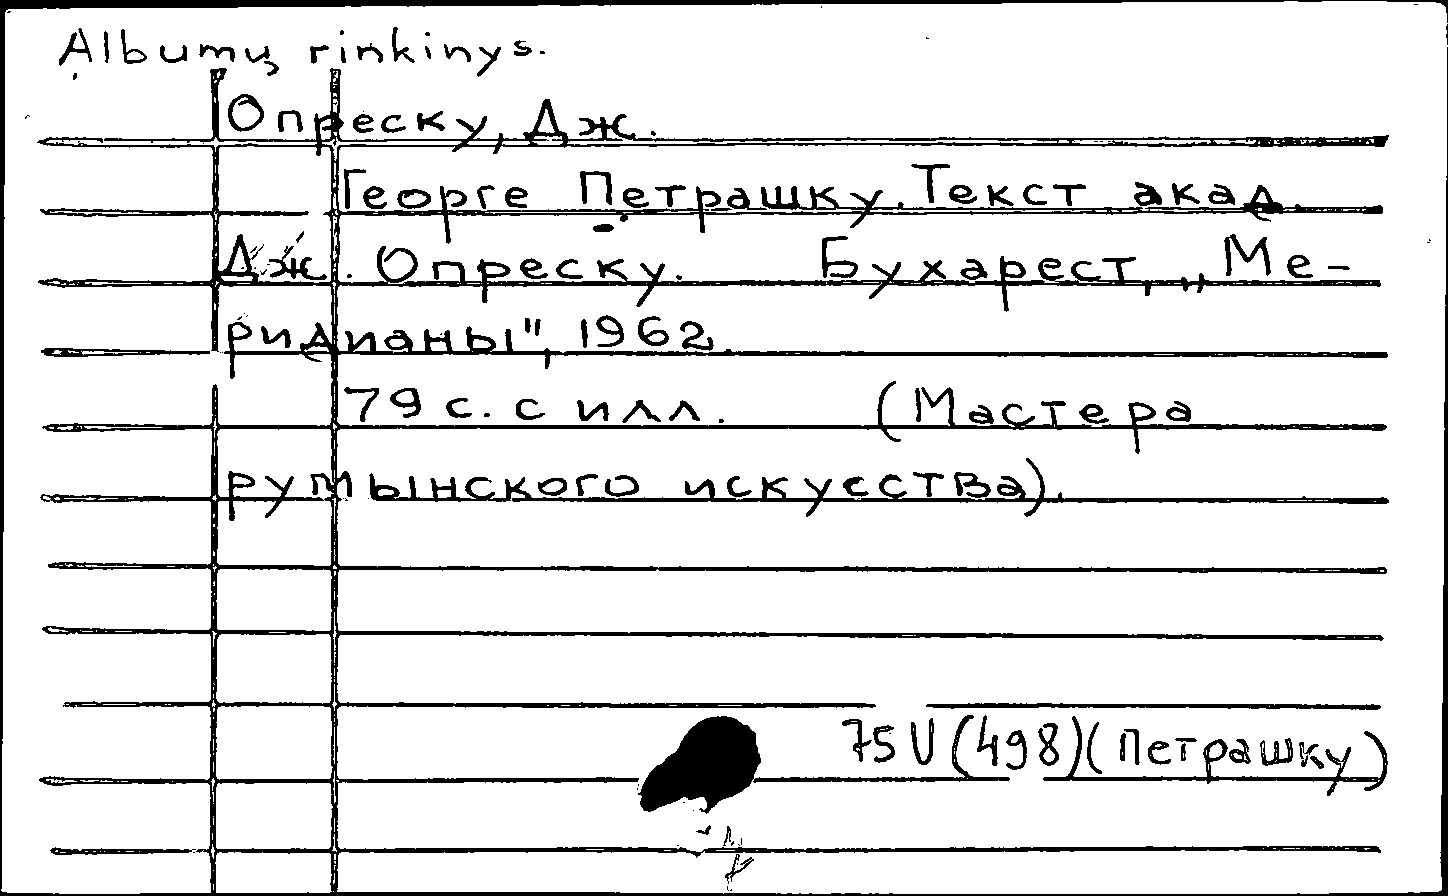 Albumų rinkinys.
Опреску, Дж.
Георге Петрашку. Текст акад.
Дж. Опреску. Бухарест, „Ме-
ридианы", 1962.
79 с. с илл. (Мастера
румынского искусства).
75U(498)(Петрашку)